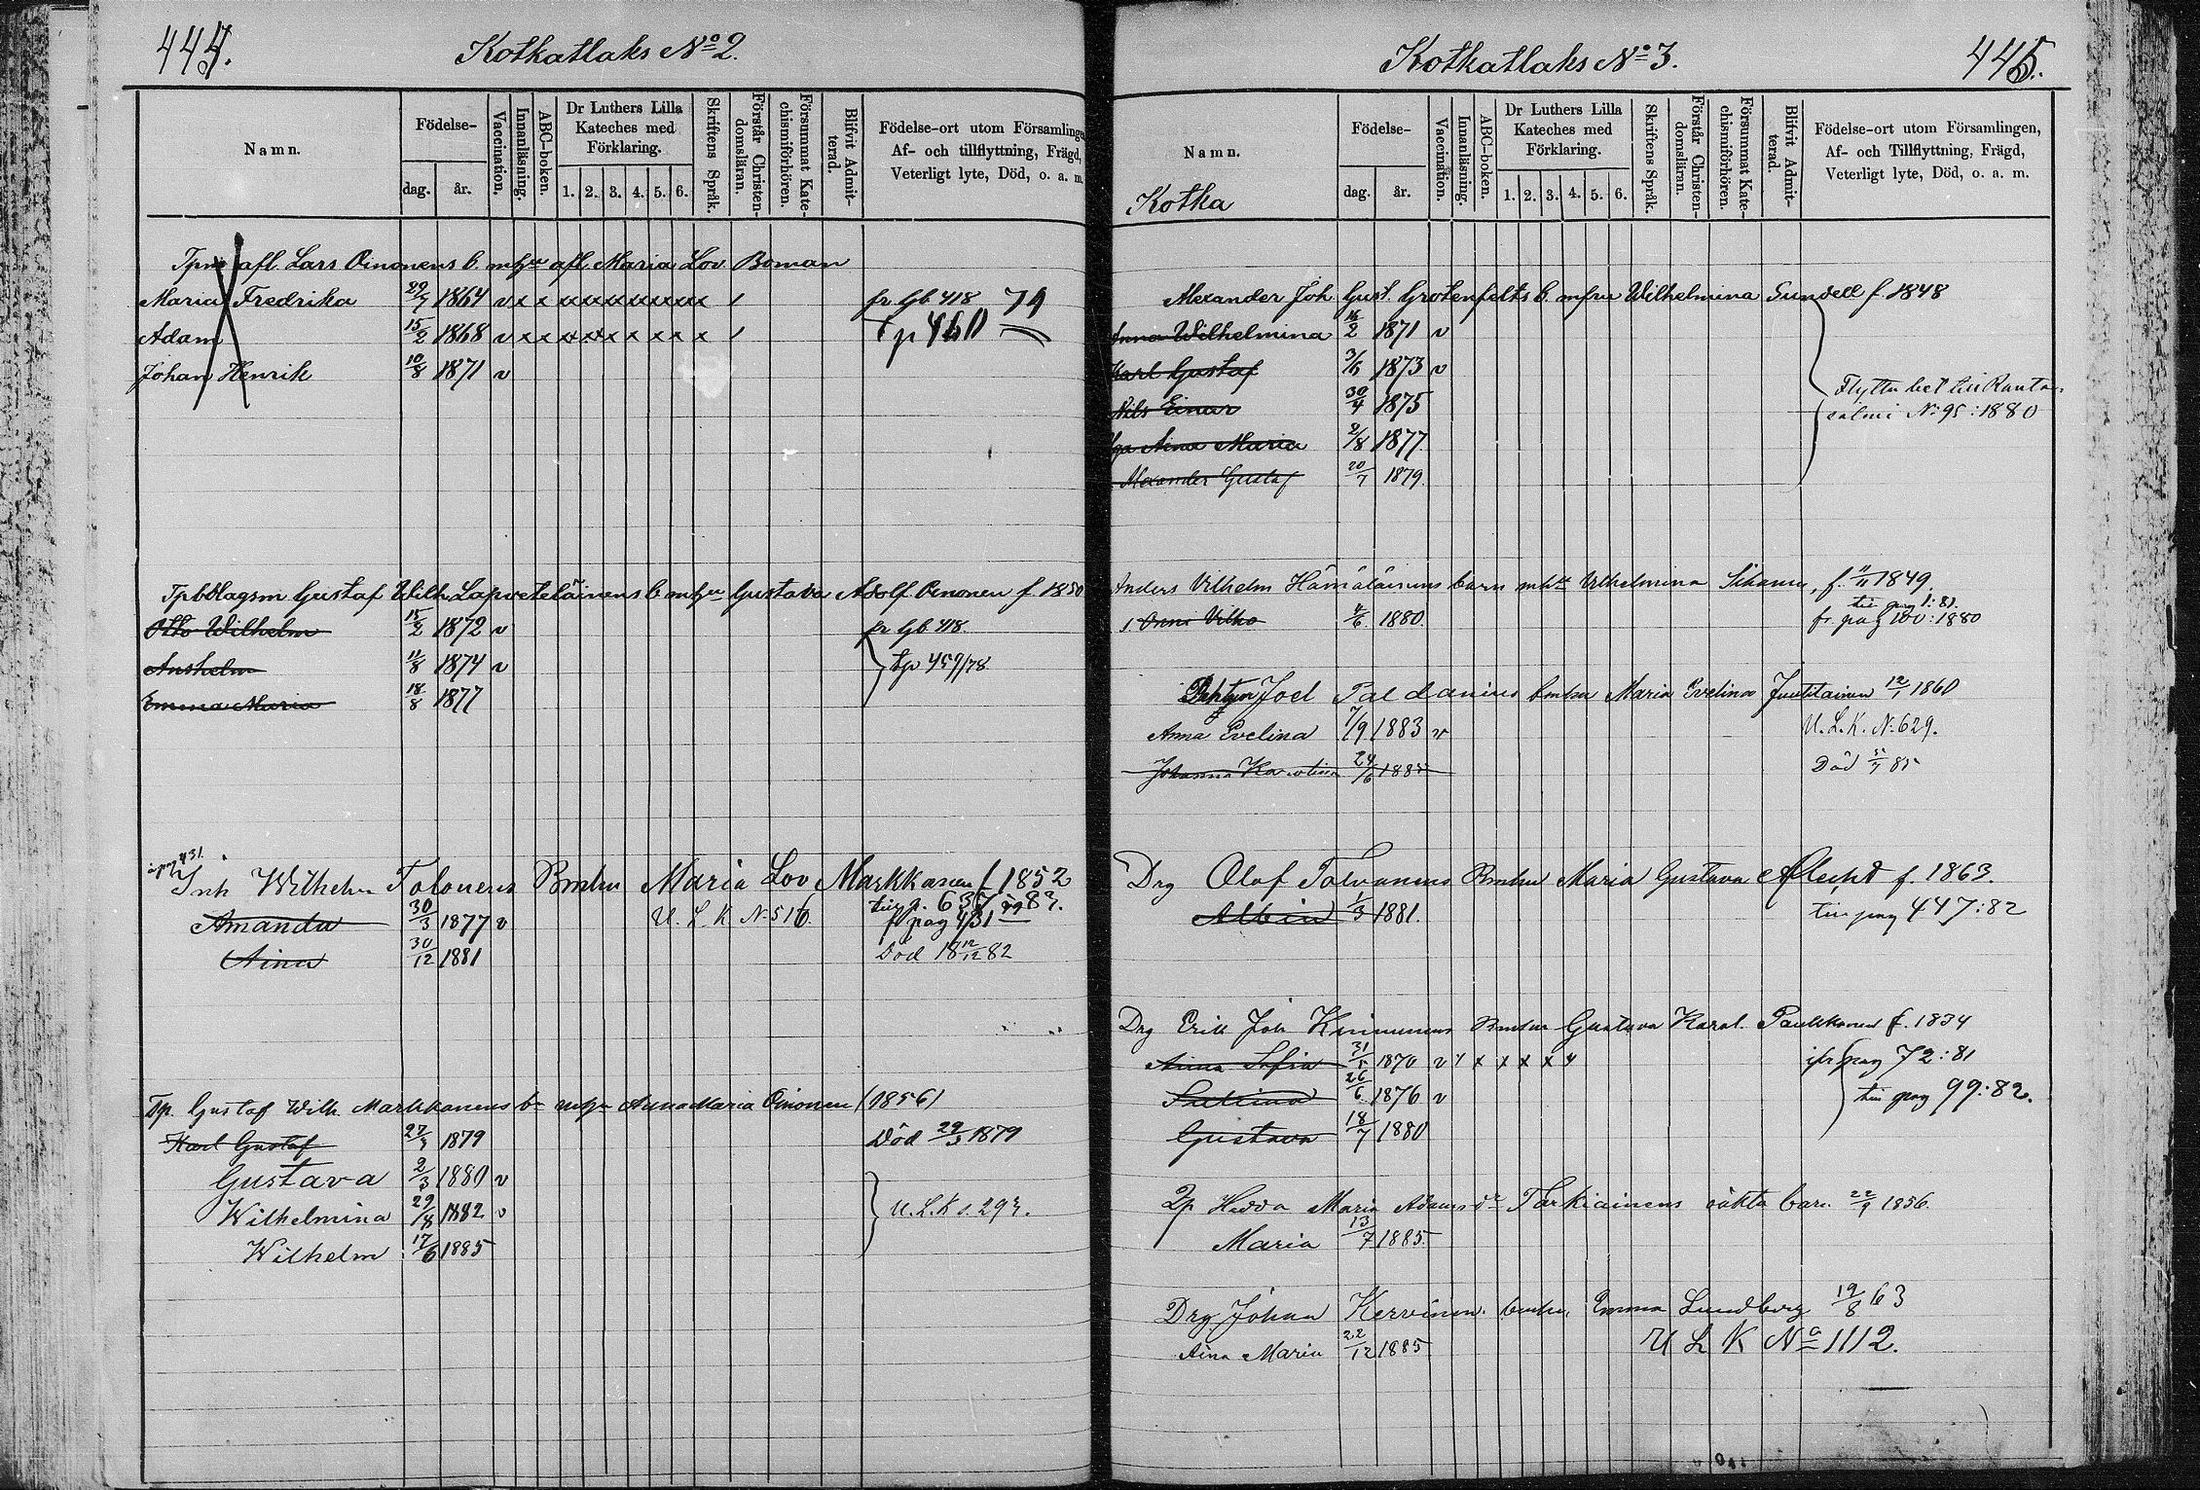 444.
Kotkatlaks No 2.
Namn.
Födelse-
dag.
år.
Vaccination.
Innanläsning.
ABC-boken.
Dr Luthers Lilla
Kateches med
Förklaring.
1. 2. 3. 4. 5. 6.
Skriftens Språk.
Förstår Christen-
domsläran.
Försummat Kate-
chismiförhören.
Blifvit Admit-
terad.
Födelse-ort utom Församlinge
Af- och tillflyttning, Frägd,
Veterligt lyte, Död, o. a. m.
afl. Lars Oinonens b. mhu afl Maria Lov. Boman
Maria Fredrika 29/7 1864 v x x x x x x x x x x / fr lgb 418 79
Adam 15/2 1868 v x x x x x x x x x x / Tp 460
Johan Henrik 10/8 1871 v
Gustaf Wilh. Lapveteläinens b mhu Gustava Adolf. Oinonen f. 1850
Otto Wilhelm 15/2 1872 v fr lgb. 418.
Anshelm 11/8 1874 v tp 459/78
Emma Maria 18/8 1877
Inh Wilhelm Tolonens Bmhu Maria Lov Markkanen f. 1852
Amanda 30/3 1877 v U. L. K No 516. fr pag 431
Aina 30/12 1881 Död 18 12/12 82
Tp. Gustaf Wilh. Markkanens bn mhu Anna Maria Oinonen (1856)
Karl Gustaf 27/3 1879 Död 29/3 1879
Gustava 2/3 1880 v
Wilhelmina 29/8 1882 v U. L. K s. 293.
Wilhelm 17/6 1885
Kotkatlaks No 3.
445.
Namn.
Kotka
Födelse-
dag.
år.
Vaccination.
Innanläsning.
ABC-boken.
Dr Luthers Lilla
Kateches med
Förklaring.
1. 2. 3. 4. 5. 6.
Skriftens Språk.
Förstår Christen-
domsläran.
Försummat Kate-
chismiförhören.
Blifvit Admit-
terad.
Födelse-ort utom Församlingen,
Af- och Tillflyttning, Frägd,
Veterligt lyte, Död, o. a. m.
Alexander Joh. Gust. Grotenfelts b. mfru Wilhelmina Sundell f. 1848
Anna Wilhelmina 16/2 1871 v
Karl Gustaf 3/6 1873 v
Flyttn bet till Ranta-
Nils Einar 30/4 1875
salmi No 95: 1880
Aina Maria 2/8 1877.
Alexander Gustaf 20/7 1879.
Anders Vilhelm Hämäläinens barn mhu Vilhelmina Sihvonen, f. 11/11 1849.
till pag 1: 81.
Onni Vilho 4/6 1880. fr. pag 100: 1880
Joel Paldanius bmhu Maria Evelina Juutilainen 12/1 1860
Anna Evelina 7/9 1883 v U. L. K. No 629.
Johanna Karolina 24/6 1885 Död 31/7 85
Drg Olof Tolvanens Bmhu Maria Gustava Aflecht f. 1863.
Albin 1/3 1881. till pag 447: 82
Drg Erik Joh Kinnunens Bmhu Gustava Karol. Paukkonen f. 1834
Anna Sofia 31/5 1870 v x x x x x x ifr pag 72: 81
Katrina 26/6 1876 v till pag 99: 82.
Gustava 18/7 1880
Tp Hedda Maria Adams dr Tarkiainens oäkta barn. 22/9 1856.
Maria 13/7 1885.
Drg. Johan Kervinen. bmhu. Emma Lundberg 19/8 63
Aina Maria 22/12 1885 U L K No 1112.